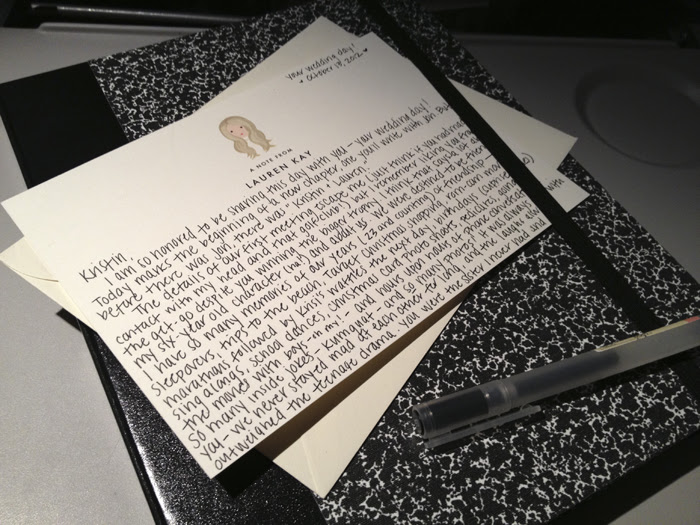 your wedding day!
october 14, 2012
A NOTE FROM
LAUREN KAY
Kristin,
I am so honored to be sharing this day with you - your wedding day!
Today marks the beginning of a new chapter, one you'll write with Jon. But
before there was Jon, there was "Kristin & Lauren."
The details of our first meeting escape me (I just think if you had made
contact with my head and that golf club!) but I remember liking you from
the get-go despite you winning the bigger trophy. I think that says a lot about
my six-year-old character (ha!) and about us. We were destined to be friends.
I have so many memories of our years (23 and counting) of friendship -
sleepovers, trips to the beach, Target, Christmas shopping, rom-com movie
marathons followed by Krist waffles the next day, birthdays
sing alongs, school dances, Christmas card photo shoots, pedicures,
mid movies with boys - oh my! - and hours upon hours of phone
so many inside jokes - and so many photos! It was always
yay - we never stayed mad at each other for long and the laughs always
outweighed the teenage drama. You were the sister I never had and